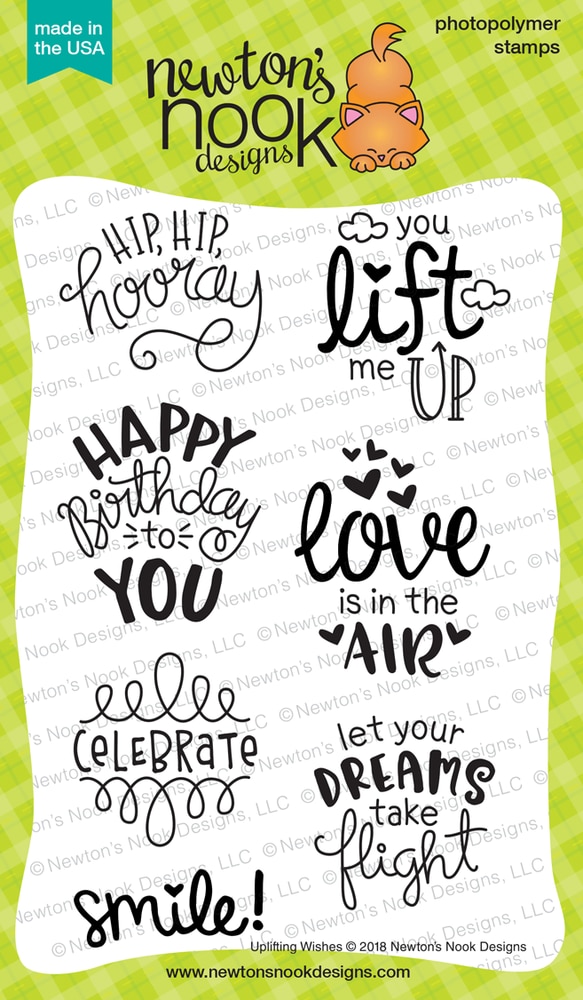 made in
the USA
newton's
nook
designs
photopolymer
stamps
HIP, HIP,
hooray
you
lift
me UP
HAPPY
Birthday
to
YOU
love
is in the
AIR
CELEBRATE
let your
DREAMS
take
flight
smile!
Uplifting Wishes © 2018 Newton's Nook Designs
www.newtonsnookdesigns.com
© Newton's Nook Designs, LLC